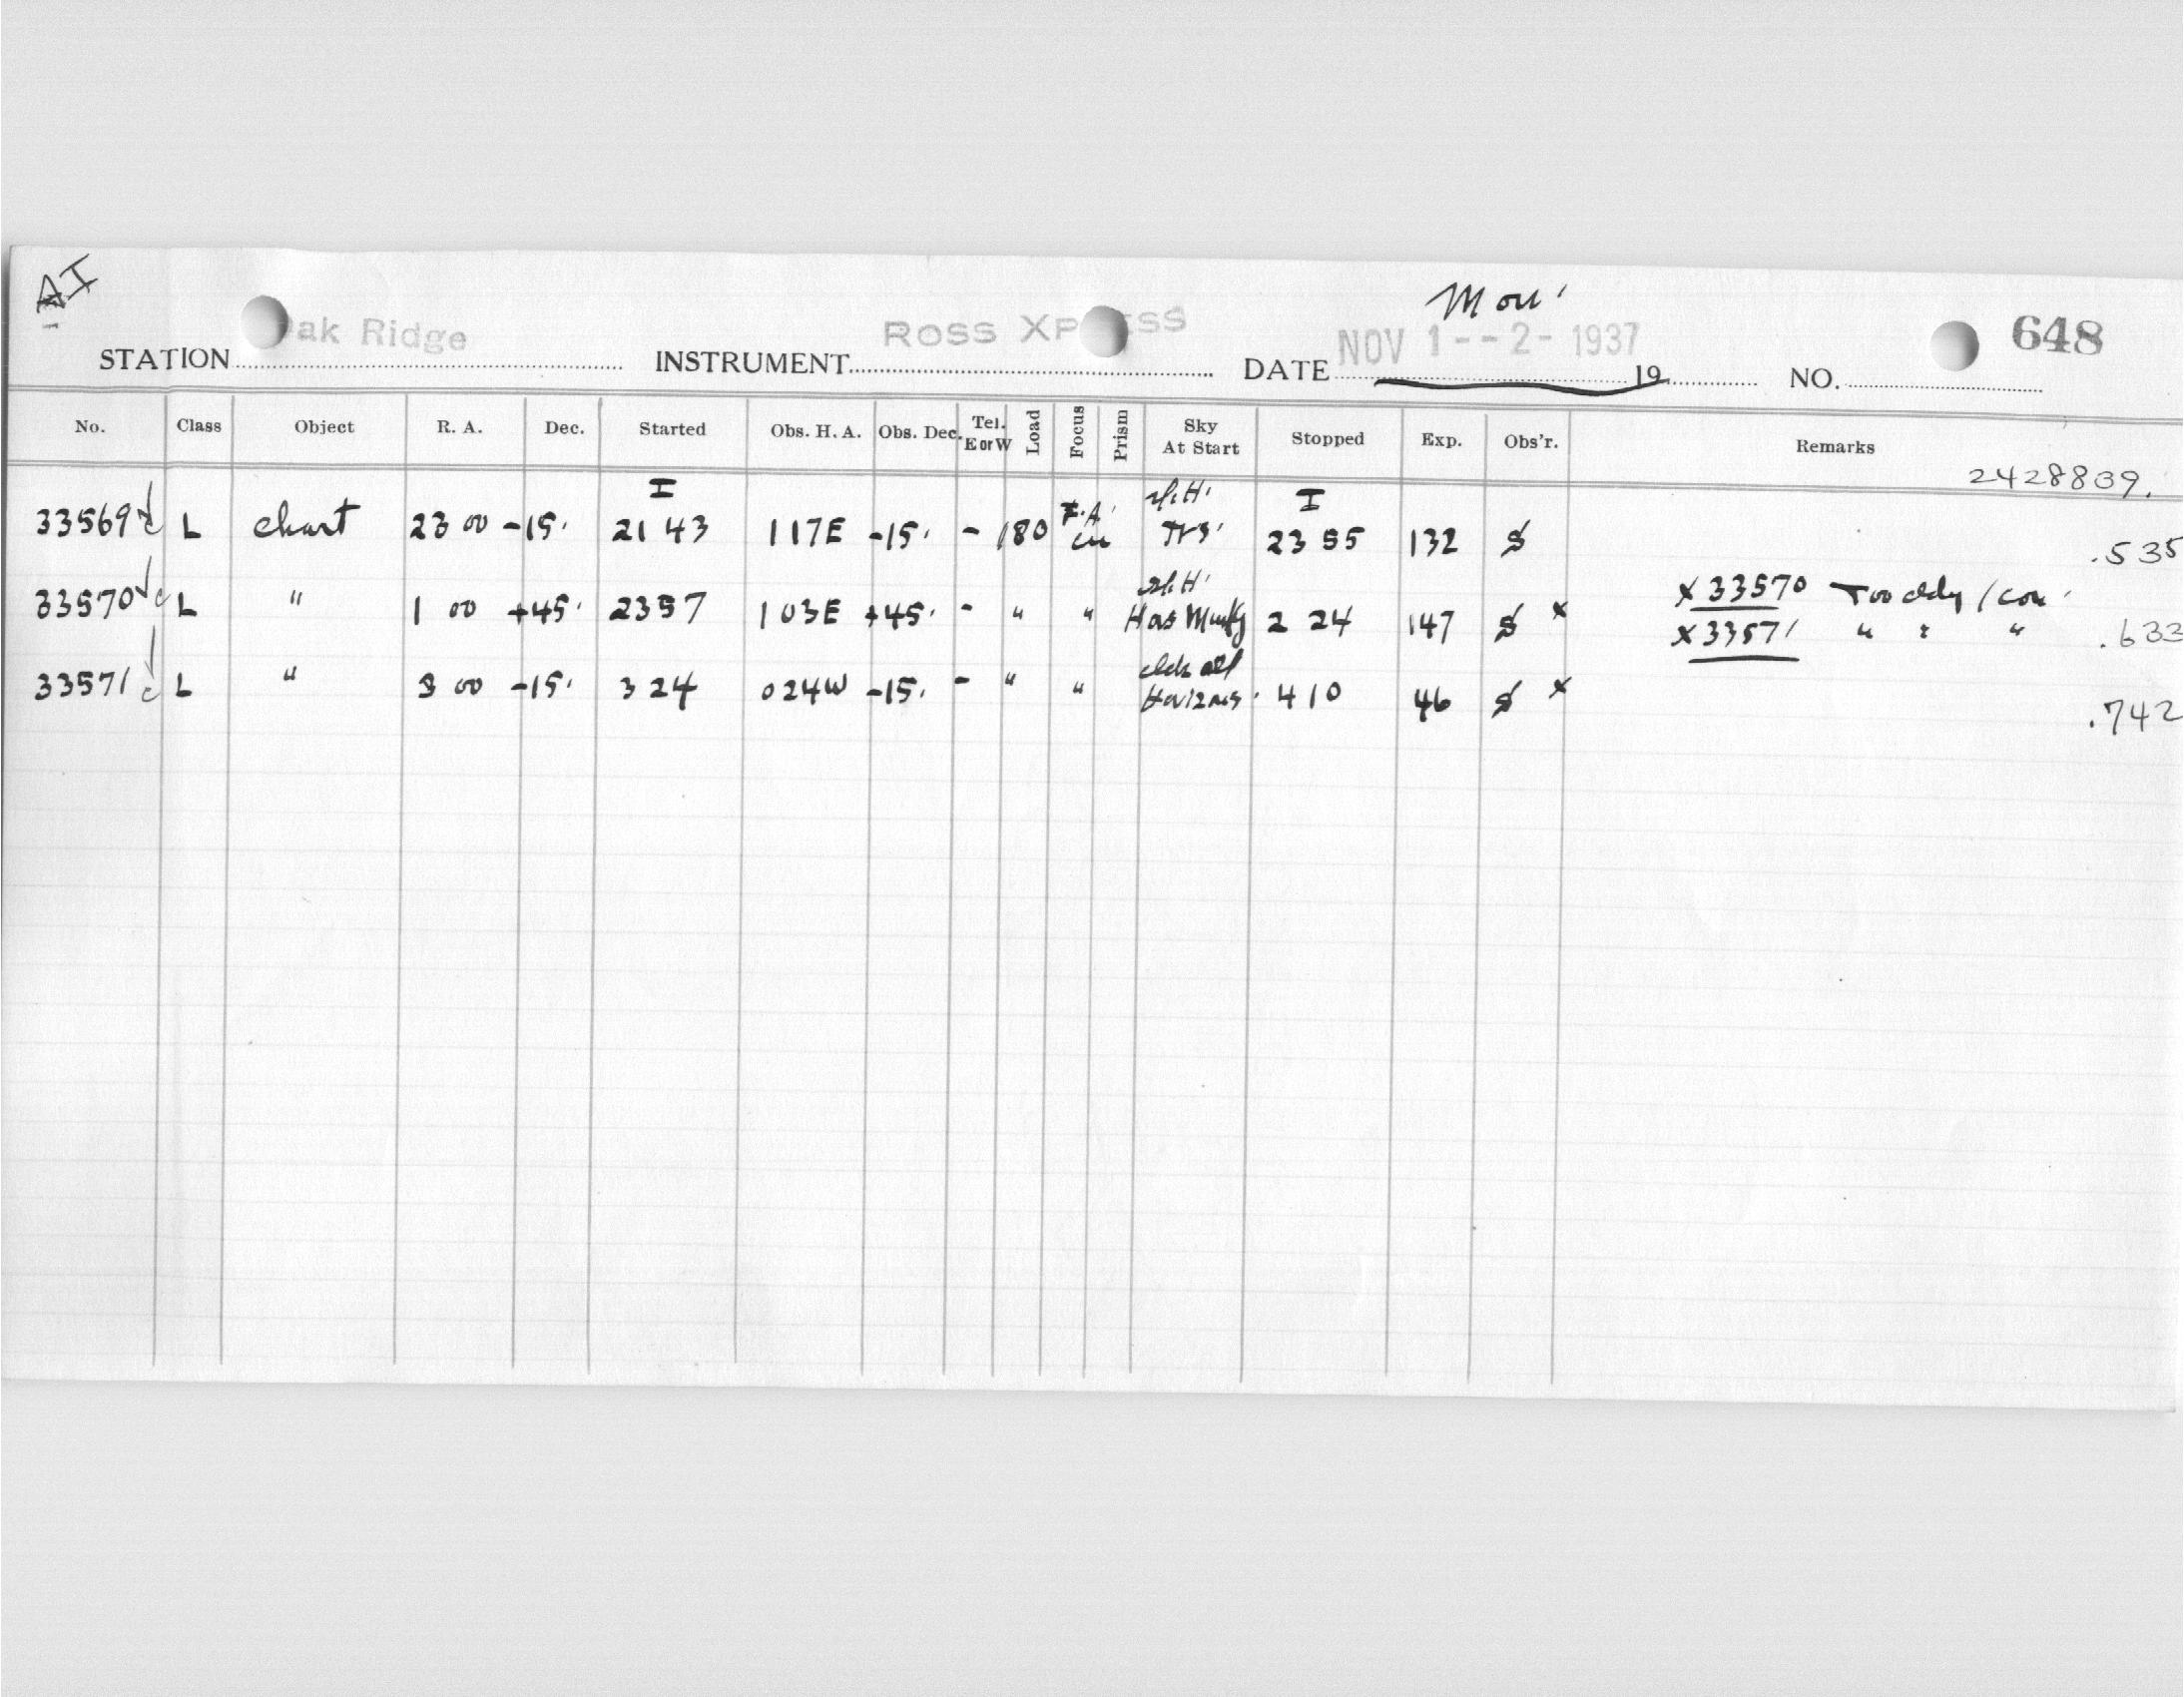 AI
Mon'
STATION Oak Ridge INSTRUMENT ROSS XPRESS DATE NOV 1--2- 1937 19 NO. 648
No. Class Object R. A. Dec. Started Obs. H. A. Obs. Dec. Tel. E or W Load Focus Prism Sky At Start Stopped Exp. Obs'r. Remarks
2428839.
33569 L chart 23 00 -15. I 21 43 117E -15. - 180 F.A. I 23 55 132 S .535
33570 L " 1 00 +45. 2357 103E +45. - " " 2 24 147 S x x 33570 Too cldy / con' .633
33571 L " 3 00 -15. 3 24 024W -15. - " " clds all Horizons. 4 10 46 S x x 33571 " : " .742